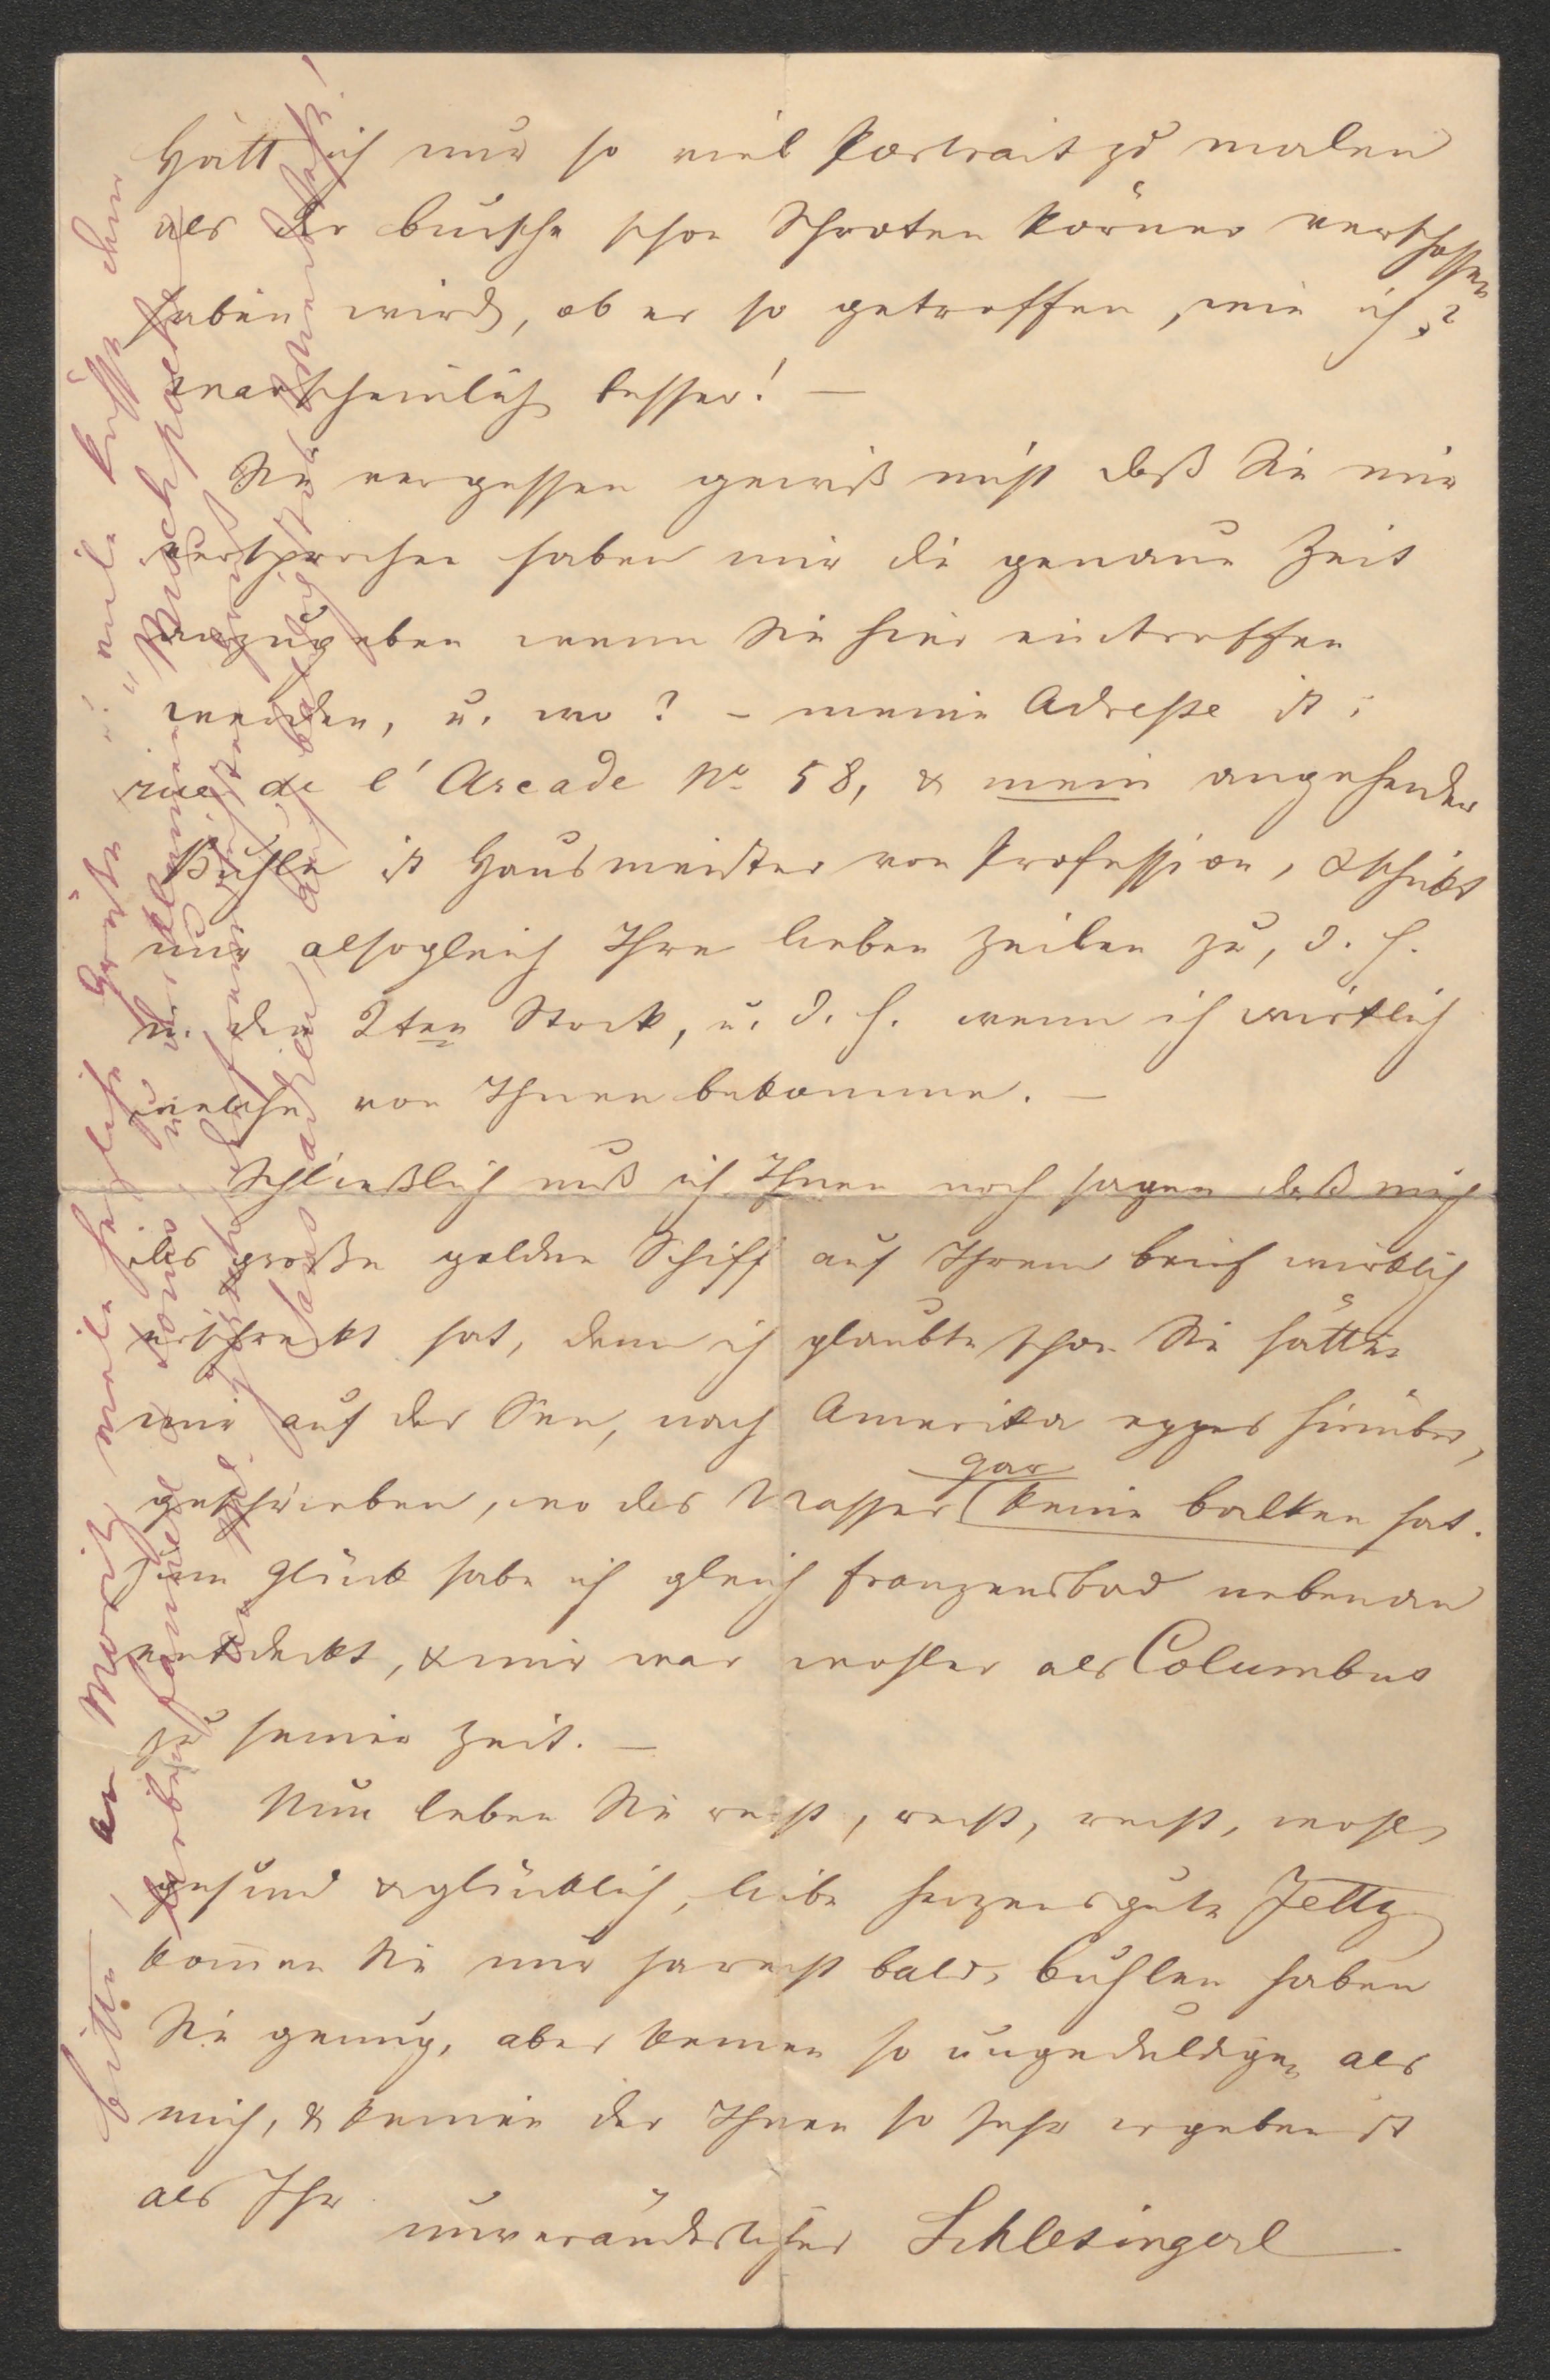 Hätt ich nur so viel Portrait zu malen
als der bursche schon Schroten körner verschossen
haben wird, ob er so getroffen, wie ich?
warscheinlich besser! —
Sie vergessen gewiß nicht daß Sie mir
versprochen haben mir die genaue Zeit
anzugeben wenn Sie hier eintreffen
werden, u. wo? – meine Adresse ist:
rue de l'Arcade No 58, & mein angehender
Buhle ist Hausmeister von Profession, & schickt
mir alsogleich Ihre lieben Zeilen zu, d. h.
in den 2ten Stock, u. d. h. wenn ich wirklich
welche von Ihnen bekomme. —
Schließlich muß ich Ihnen noch sagen daß mich
das große goldne Schiff auf Ihrem brief wirklich
erschreckt hat, denn ich glaubte schon Sie hätten
mir auf der See, nach Amerika hinüber,
geschrieben, wo das Wasser gar keine balken hat.
Zum Glück habe ich gleich franzensbad nebenan
entdeckt, & mir war wohler als Columbus
zu seiner Zeit. —
Nun leben Sie recht, recht, recht, wohl,
gesund & glücklich, liebe herzensgute Jetty
kommen Sie nur ja recht bald, buhlen haben
Sie genug, aber keinen so ungeduldigen als
mich, & keinen der Ihnen so sehr ergeben ist
als Ihr
unveränderlicher Schlesingerl
bitte, an Moritz viele herzliche Grüße, u. viele küsse dem